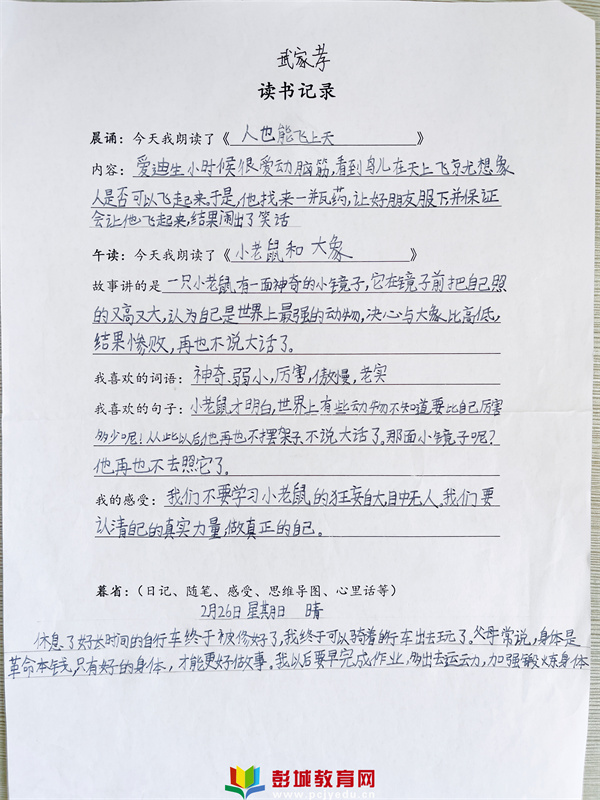 武家荐
读书记录
晨诵：今天我朗读了《 人也能飞上天 》
内容：爱迪生小时候很爱动脑筋,看到鸟儿在天上飞就想象
人是否可以飞起来.于是,他找来一并瓦药,让好朋友服下,并保证
会让他飞起来,结果闹出了笑话
午读：今天我朗读了《小老鼠和大象 》
故事讲的是一只小老鼠有一面神奇的小镜子,它在镜子前把自己照
的又高又大,认为自己是世界上最强的动物,决心与大象比高低,
结果惨败,再也不说大话了。
我喜欢的词语：神奇、弱小,厉害,傲慢,老实
我喜欢的句子：小老鼠才明白,世界上有些动物不知道要比自己厉害
多少呢!从此以后他再也不摆架子,不说大话了。那面小镜子呢?
他再也不去照它了。
我的感受：我们不要学习小老鼠的狂妄自大目中无人。我们要
认清自己的真实力量,做真正的自己。
暮省：（日记、随笔、感受、思维导图、心里话等）
2月26日 星期日 晴
休息了好长时间的自行车终于被修好了,我终于可以骑着自行车出去玩了。父母常说,身体是
革命本钱,只有好的身体,才能更好做事。我以后要早完成作业,多出去运动,加强锻炼身体
彭城教育网
www.pcjyedu.cn